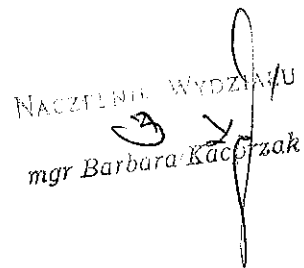 NACZELNIK WYDZIAŁU
mgr Barbara Kacprzak